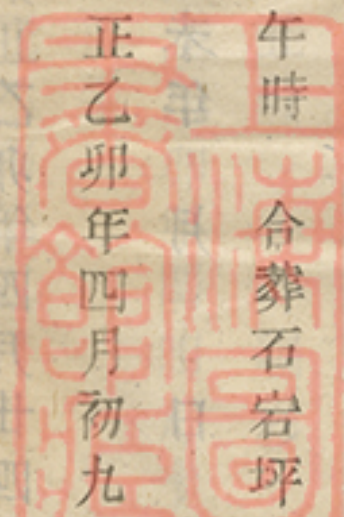 午時　合葬石岩坪
正乙卯年四月初九